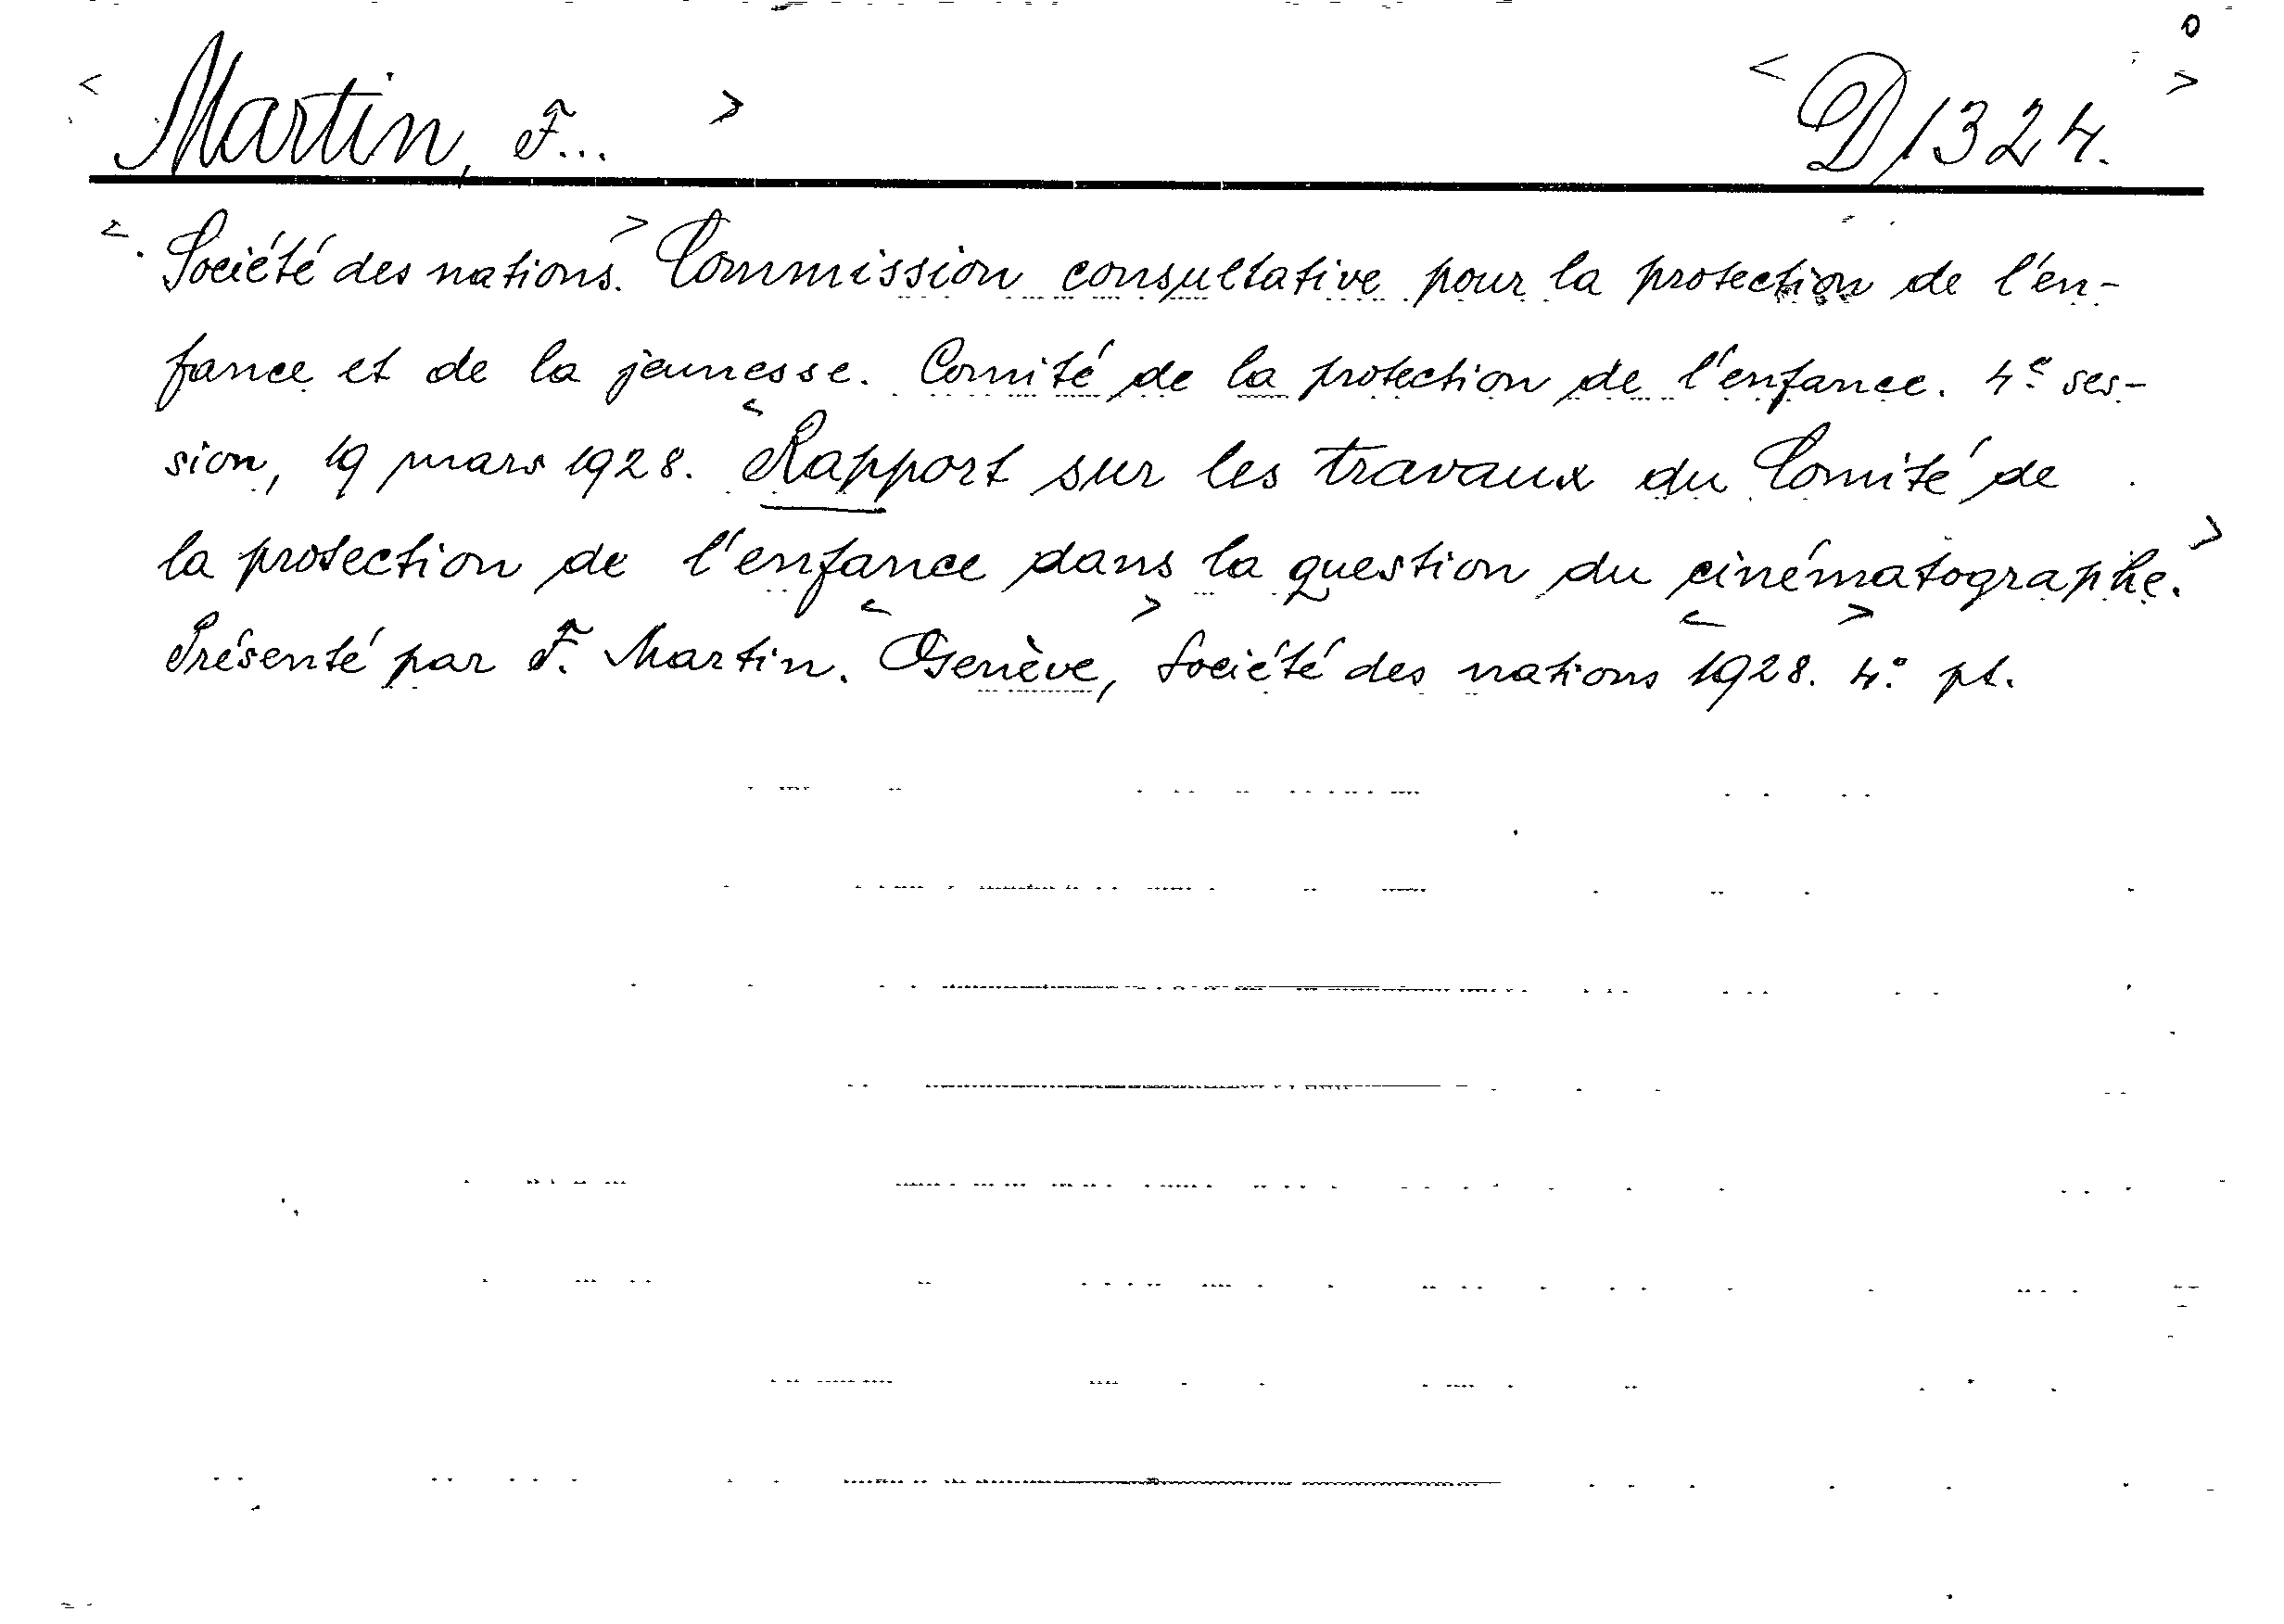 < Martin, F... > < D 1324. >
< Société des nations. > Commission consultative pour la protection de l'en-
fance et de la jeunesse. Comité de la protection de l'enfance. 4e ses-
sion, 19 mars 1928. < Rapport sur les travaux du Comité de
la protection de l'enfance dans la question du cinématographe. >
Présenté par F. Martin. < Genève, > Société des nations < 1928. > 4° pt.